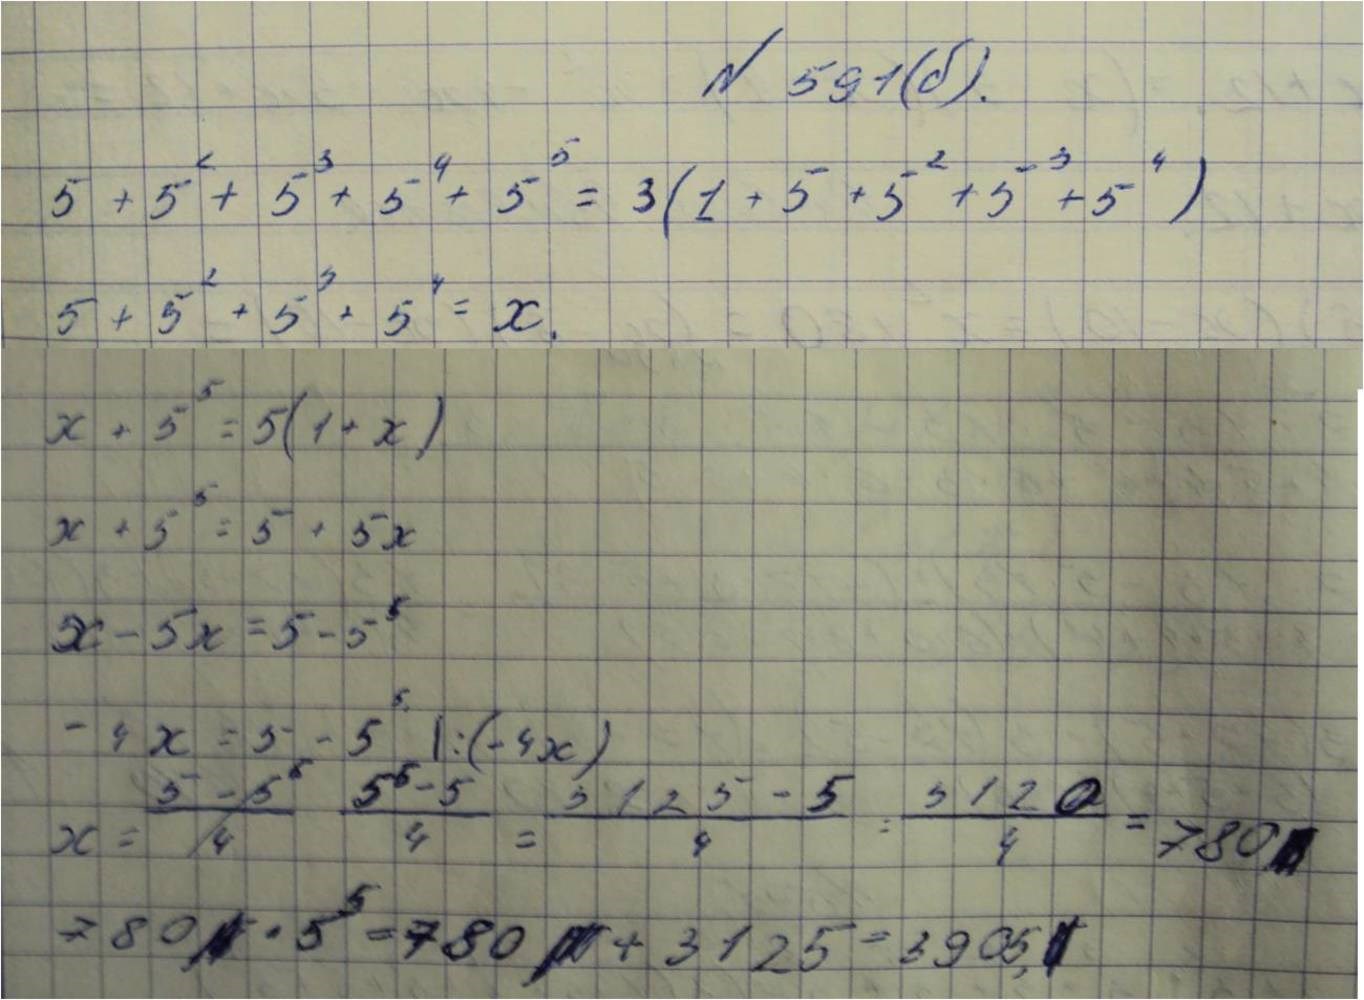 № 591(б).
5 + 5² + 5³ + 5⁴ + 5⁵ = 3(1 + 5 + 5² + 5³ + 5⁴)
5 + 5² + 5³ + 5⁴ = x.
x + 5⁵ = 5(1 + x)
x + 5⁵ = 5 + 5x
x - 5x = 5 - 5⁵
-4x = 5 - 5⁵ |:(-4x)
x = (5 - 5⁵)/4 (5⁵ - 5)/4 = (3125 - 5)/4 = 3120/4 = 780
780 · 5⁵ = 780 + 3125 = 3905,